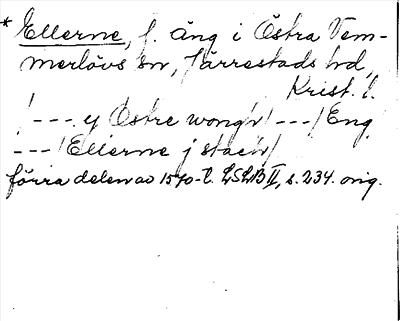 * Ellerne, f. äng i Östra Vem-
merlövs sn, Järrestads hd,
Krist. l.
/ --- y Østre wong'n/ ---/ Eng
---/ Ellerne j stæc'n/
förra delen av 1570-t. LSLB II, s. 234. orig.